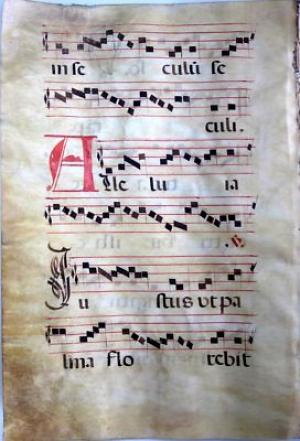 in se cu lo culũ se
culi.
Alle lu ia
℣.
Iu stus ut pa
lma flo rebit